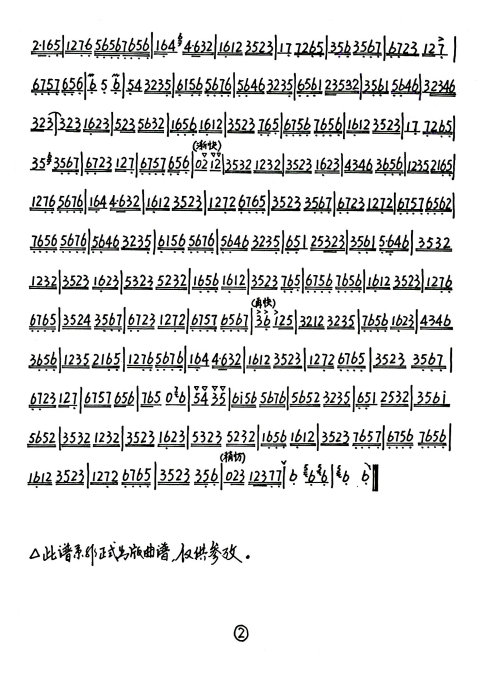 2·165|1276 56567656|164 4·632|1612 3523|17 7265|356 3567|6723 127|
6757656|6 5 6|54 3235|6156 5676|5646 3235|6561 23532|3561 5646|32346
323|323 1623|523 5632|1656 1612|3523 765|6756 7656|1612 3523|17 7265|
(渐快)
35 3567|6723 127|6757 656|02 12|3532 1232|3523 1623|4346 3656|1235 2165|
1276 5676|164 4·632|1612 3523|1272 6765|3523 3567|6723 1272|6757 6562|
7656 5676|5646 3235|6156 5676|5646 3235|651 25323|3561 5·646|3532
1232|3523 1623|5323 5232|1656 1612|3523 765|6756 7656|1612 3523|1276
(再快)
6765|3524 3567|6723 1272|6757 6567|36 125|3212 3235|7656 1623|4346
3656|1235 2165|1276 5676|164 4·632|1612 3523|1272 6765|3523 3567|
6723 127|6757 656|765 0 6|54 35|6156 5676|5652 3235|651 2532|356i
5652|3532 1232|3523 1623|5323 5232|1656 1612|3523 7657|6756 7656|
(稍切)
1612 3523|1272 6765|3523 356|023 12377|6 6 6|6 6‖
△此谱系非正式出版曲谱,仅供参改。
②